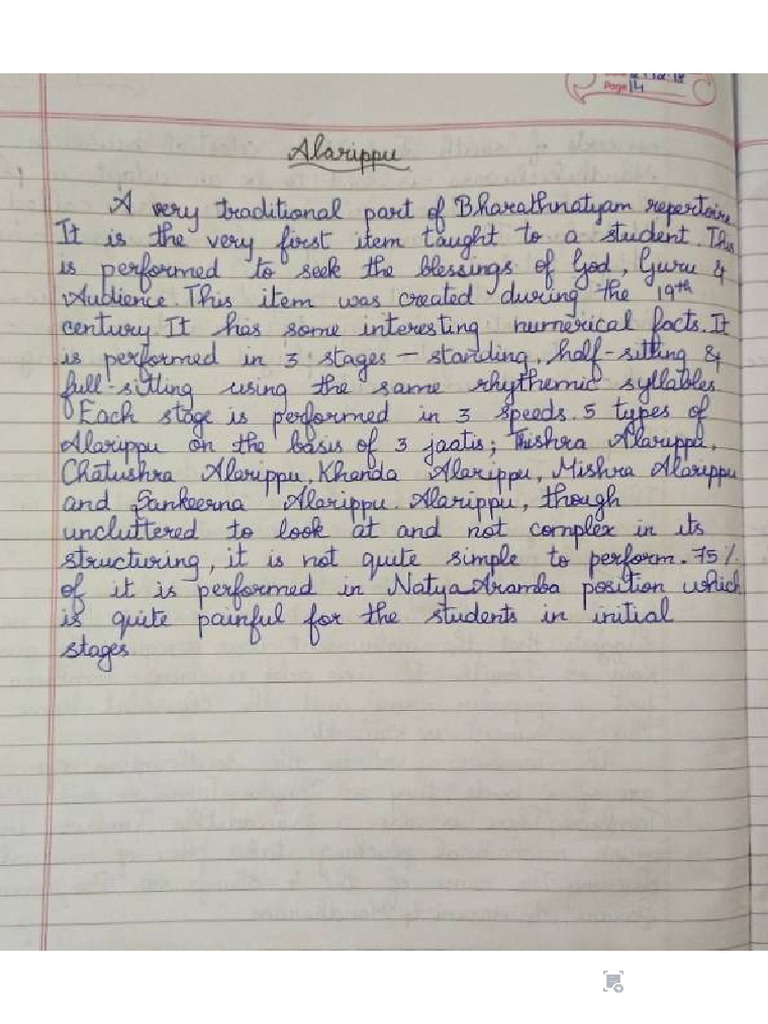 Page 14
Alarippu
A very traditional part of Bharathnatyam repertoire.
It is the very first item taught to a student. This
is performed to seek the blessings of God, Guru &
Audience. This item was created during the 19th
century. It has some interesting numerical facts. It
is performed in 3 stages - standing, half-sitting &
full-sitting using the same rhythemic syllables
Each stage is performed in 3 speeds. 5 types of
Alarippu on the basis of 3 jaatis; Thishra Alarippu,
Chatushra Alarippu, Khanda Alarippu, Mishra Alarippu
and Sankeerna Alarippu. Alarippu, though
uncluttered to look at and not complex in its
structuring, it is not quite simple to perform. 75%
of it is performed in Natya Aramba position which
is quite painful for the students in initial
stages